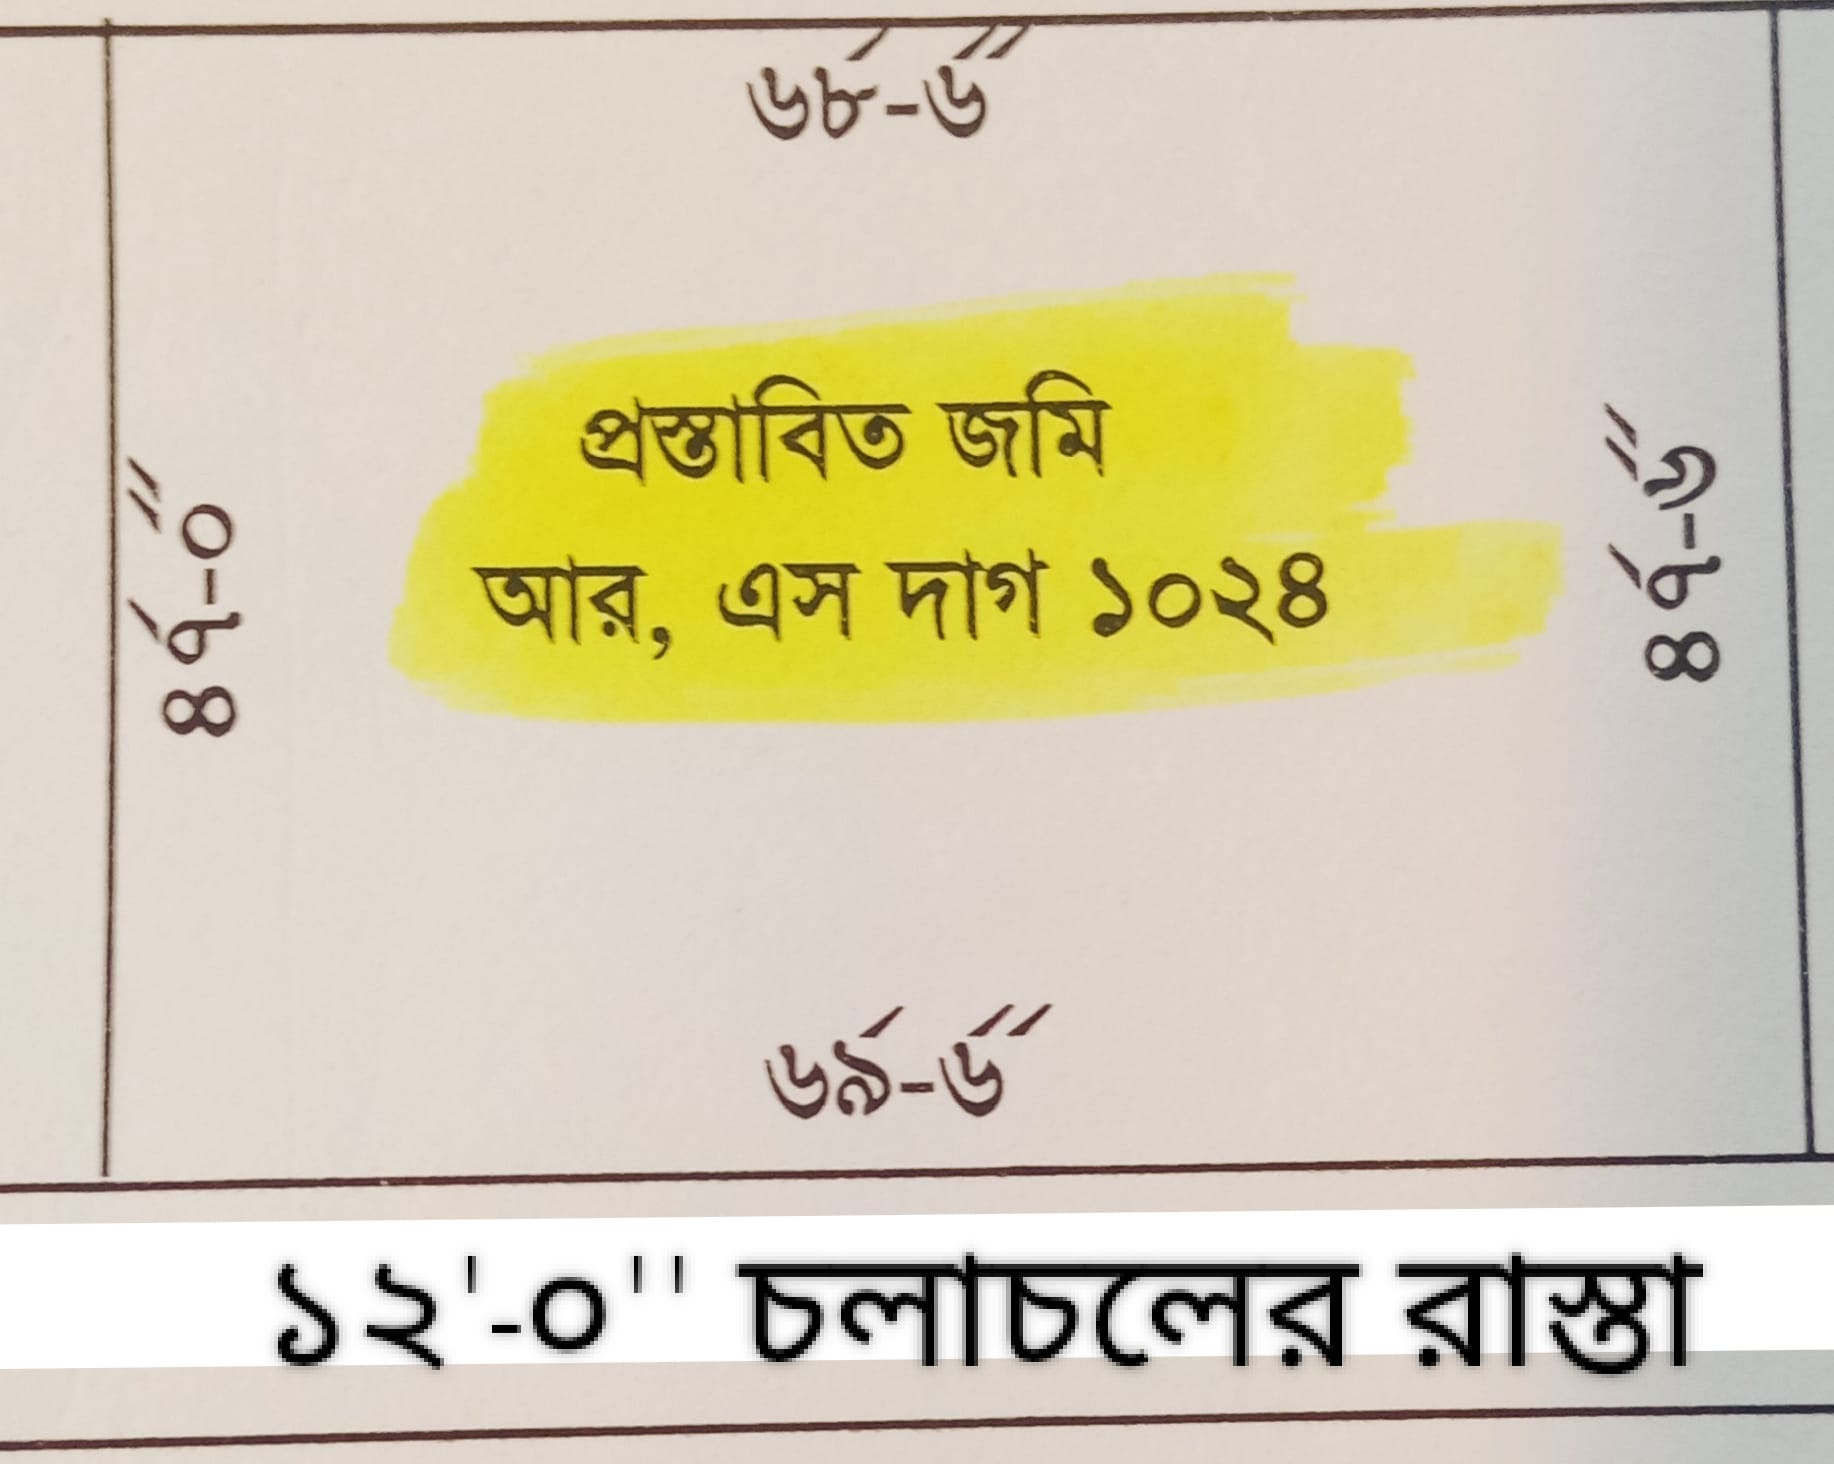 ৬৮'-৬"
প্রস্তাবিত জমি
আর, এস দাগ ১০২৪
৪৭'-০"
৪৭'-৬"
৬৯'-৬"
১২'-০'' চলাচলের রাস্তা